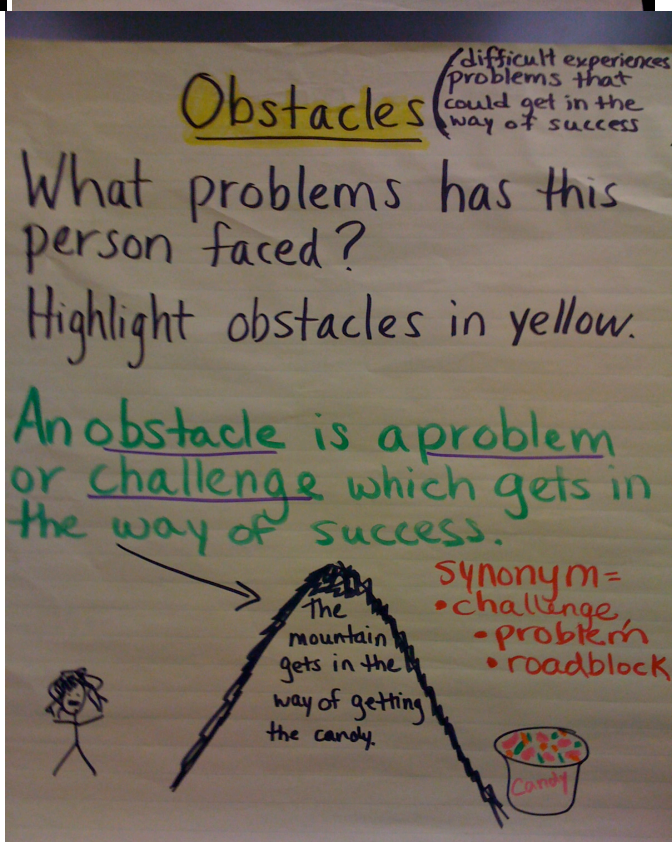 Obstacles
(difficult experiences
problems that
could get in the
way of success
What problems has this
person faced?
Highlight obstacles in yellow.
An obstacle is a problem
or challenge which gets in
the way of success.
The
mountain
gets in the
way of getting
the candy.
Synonym=
• challenge,
• problem
• roadblock
Candy